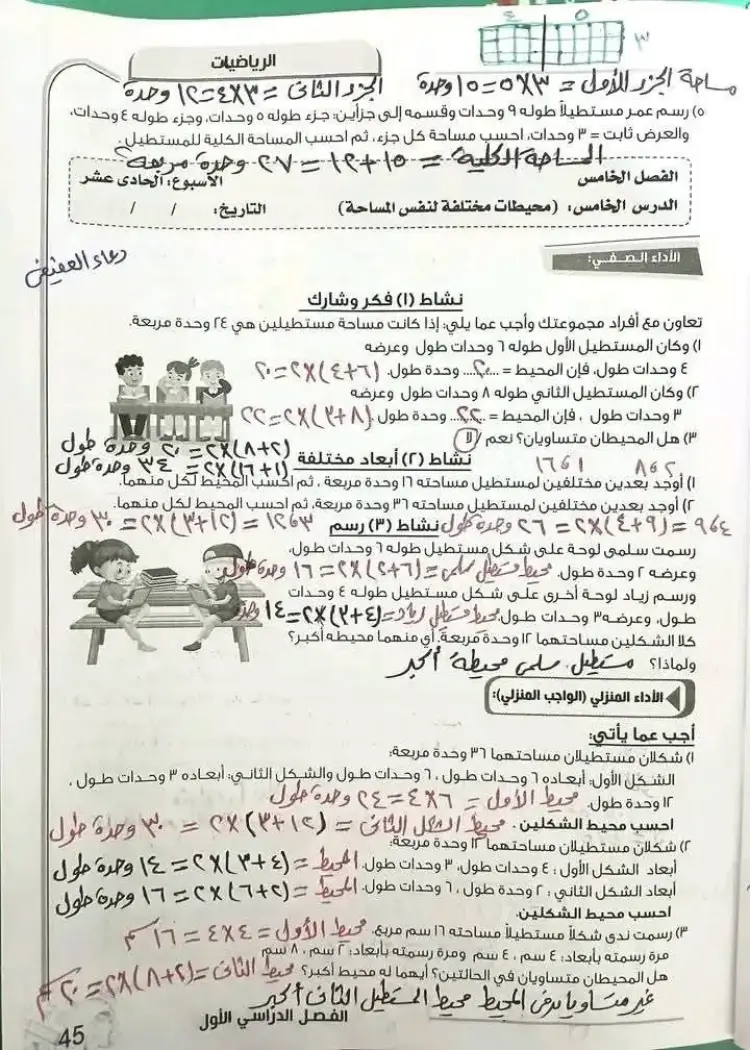 ٤ ٥
٣
الرياضيات
مساحة الجزء الأول = ٣×٥=١٥ وحدة الجزء الثانى = ٣×٤=١٢ وحدة
٥) رسم عمر مستطيلاً طوله ٩ وحدات وقسمه إلى جزأين: جزء طوله ٥ وحدات، وجزء طوله ٤ وحدات،
والعرض ثابت = ٣ وحدات، احسب مساحة كل جزء، ثم احسب المساحة الكلية للمستطيل.
المساحة الكلية = ١٥+١٢ = ٢٧ وحدة مربعة
الفصل الخامس الأسبوع: الحادى عشر
الدرس الخامس: (محيطات مختلفة لنفس المساحة) التاريخ: / /
دعاء العفيفى
الأداء الصفي:
نشاط (١) فكر وشارك
تعاون مع أفراد مجموعتك وأجب عما يلي: إذا كانت مساحة مستطيلين هي ٢٤ وحدة مربعة.
١) وكان المستطيل الأول طوله ٦ وحدات طول وعرضه
٤ وحدات طول، فإن المحيط = ...٢٠... وحدة طول. (٦+٤)×٢=٢٠
٢) وكان المستطيل الثاني طوله ٨ وحدات طول وعرضه
٣ وحدات طول ، فإن المحيط = ...٢٢... وحدة طول. (٨+٣)×٢=٢٢
٣) هل المحيطان متساويان؟ نعم / لا
(٢+٨)×٢= ٢٠ وحدة طول
نشاط (٢) أبعاد مختلفة ٨،٢ ١،١٦
(١+١٦)×٢= ٣٤ وحدة طول
١) أوجد بعدين مختلفين لمستطيل مساحته ١٦ وحدة مربعة ، ثم احسب المحيط لكل منهما.
٢) أوجد بعدين مختلفين لمستطيل مساحته ٣٦ وحدة مربعة، ثم احسب المحيط لكل منهما.
٩،٤ = (٩+٤)×٢= ٢٦ وحدة طول نشاط (٣) رسم ٣،١٢ = (١٢+٣)×٢ = ٣٠ وحدة طول
رسمت سلمى لوحة على شكل مستطيل طوله ٦ وحدات طول،
وعرضه ٢ وحدة طول. محيط مستطيل سلمى = (٦+٢)×٢= ١٦ وحدة طول
ورسم زياد لوحة أخرى على شكل مستطيل طوله ٤ وحدات
طول، وعرضه ٣ وحدات طول. محيط مستطيل زياد = (٤+٣)×٢=١٤ وحدة
كلا الشكلين مساحتهما ١٢ وحدة مربعة. أي منهما محيطه أكبر؟
ولماذا؟ مستطيل سلمى محيطة أكبر
الأداء المنزلي (الواجب المنزلي):
أجب عما يأتي:
١) شكلان مستطيلان مساحتهما ٣٦ وحدة مربعة:
الشكل الأول: أبعاده ٦ وحدات طول ، ٦ وحدات طول والشكل الثاني: أبعاده ٣ وحدات طول ،
١٢ وحدة طول. محيط الأول = ٦×٤ = ٢٤ وحدة طول
احسب محيط الشكلين . محيط الشكل الثانى = (١٢+٣)×٢ = ٣٠ وحدة طول
٢) شكلان مستطيلان مساحتهما ١٢ وحدة مربعة:
أبعاد الشكل الأول : ٤ وحدات طول، ٣ وحدات طول. المحيط = (٤+٣)×٢= ١٤ وحدة طول
أبعاد الشكل الثاني : ٢ وحدة طول ، ٦ وحدات طول. المحيط = (٢+٦)×٢= ١٦ وحدة طول
احسب محيط الشكلين.
٣) رسمت ندى شكلاً مستطيلاً مساحته ١٦ سم مربع. محيط الأول = ٤×٤ = ١٦ سم
مرة رسمته بأبعاد: ٤ سم ، ٤ سم ومرة رسمته بأبعاد: ٢ سم ، ٨ سم
هل المحيطان متساويان في الحالتين؟ أيهما له محيط أكبر؟ محيط الثانى = (٢+٨)×٢= ٢٠ سم
غير متساويان فى المحيط محيط المستطيل الثانى أكبر
الفصل الدراسي الأول
45